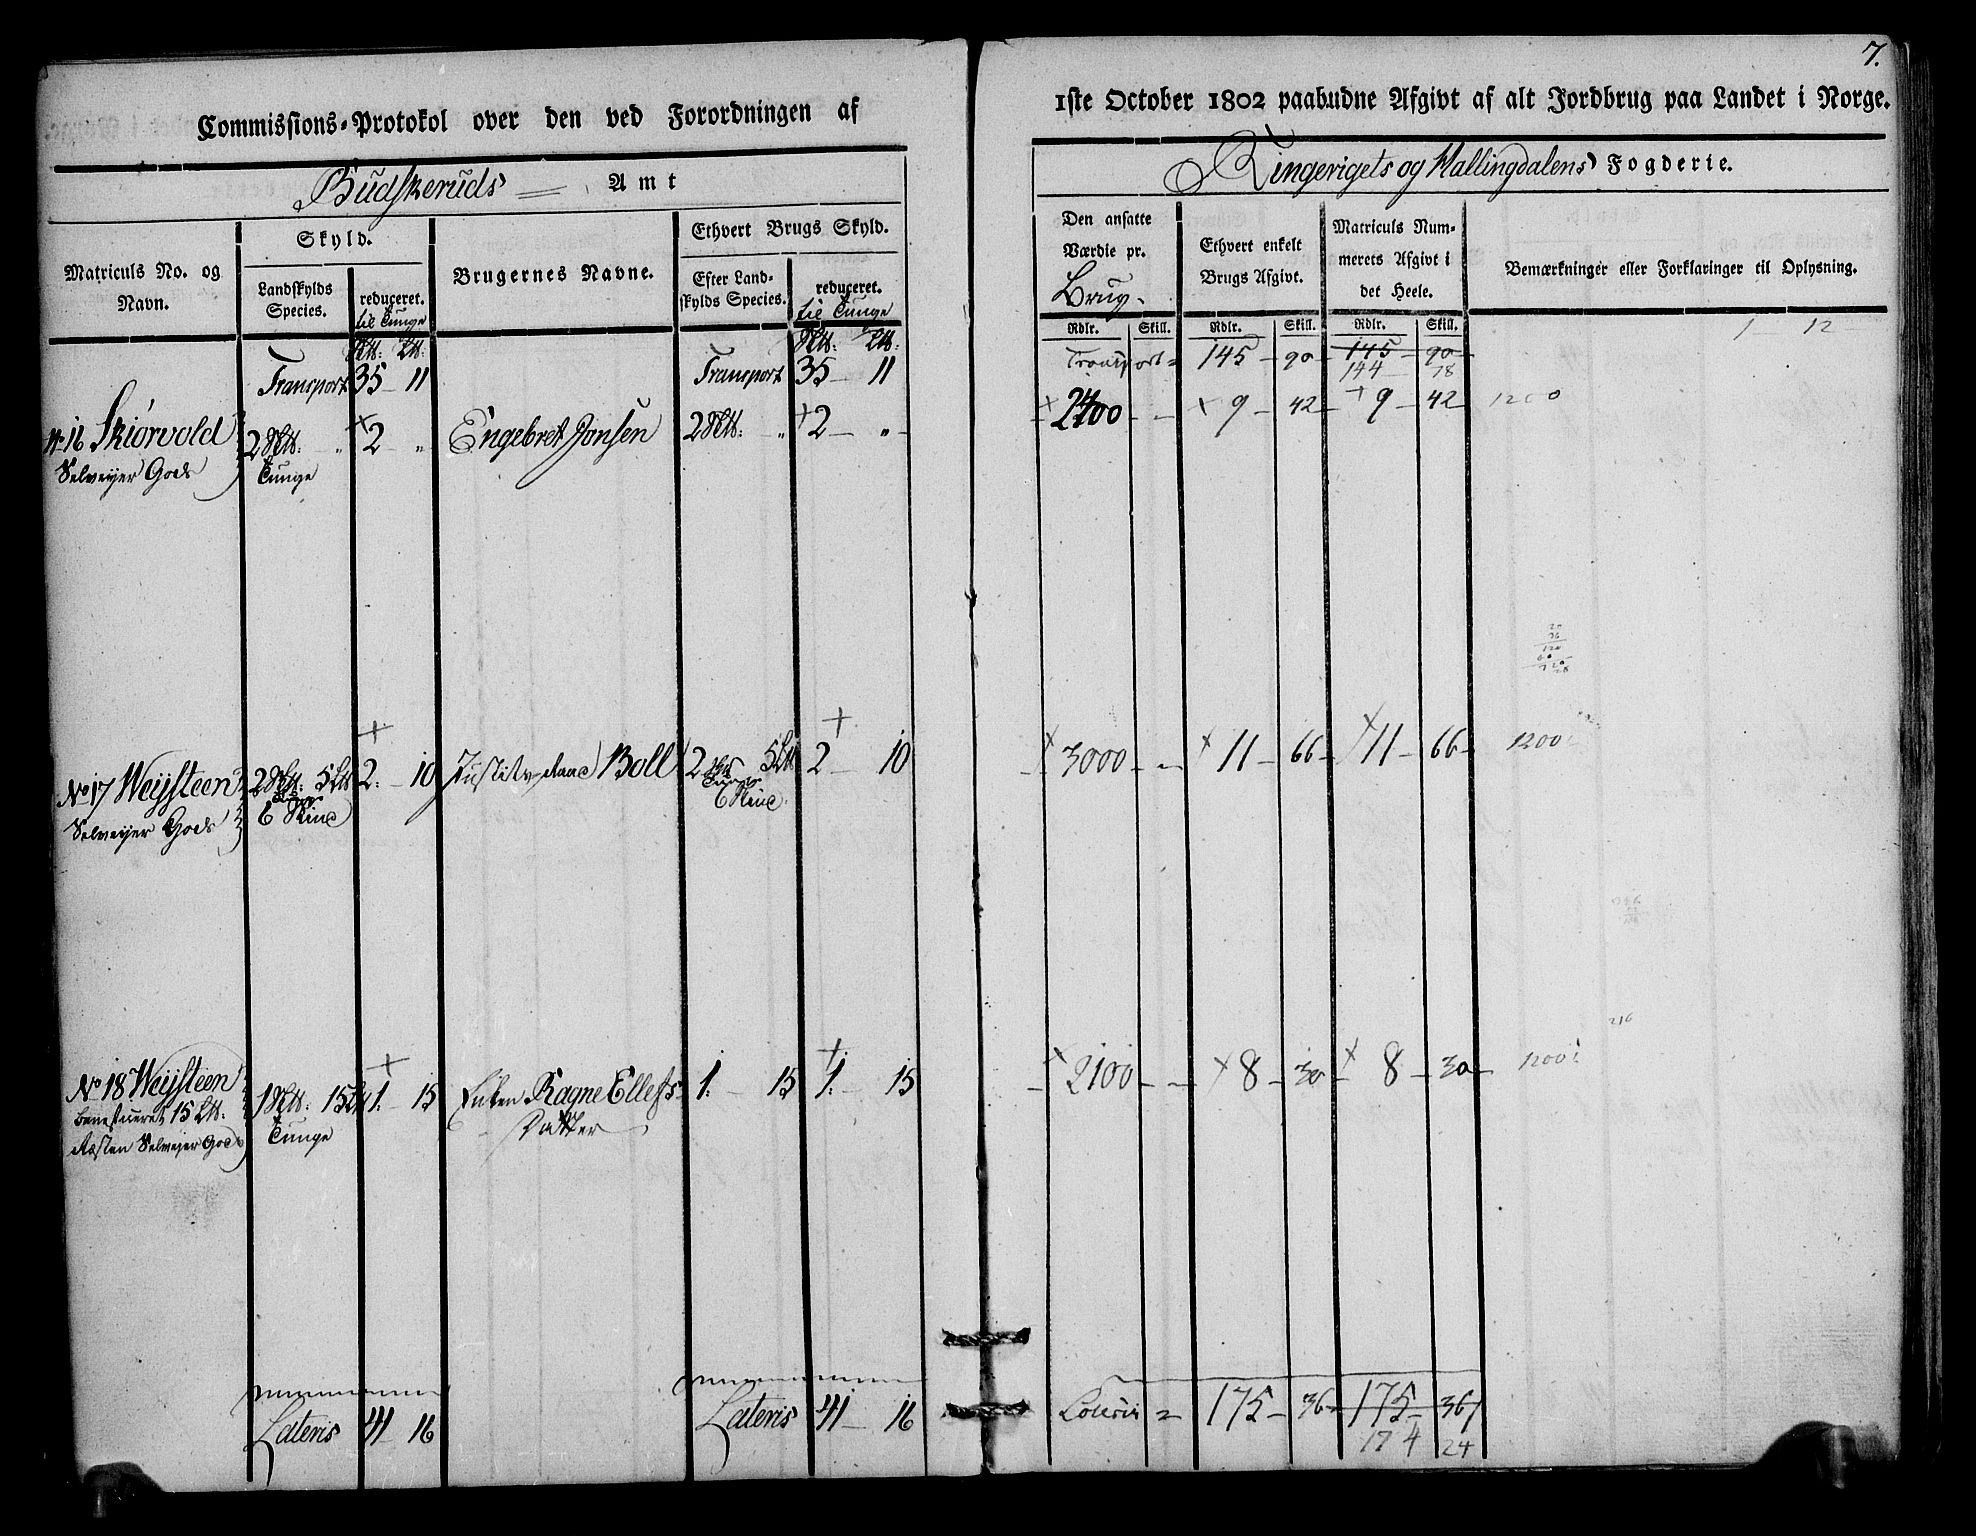 7.
Commissions-Protokol over den ved Forordningen af 1ste October 1802 paabudne Afgivt af alt Jordbrug paa Landet i Norge.
Budskeruds Amt
Ringerigets og Hallingdalens Fogderie.
Matriculs No. og Navn.
Skyld.
Landskylds Species.
reduceret.
til Tunge
Brugernes Navne.
Ethvert Brugs Skyld.
Efter Landskylds Species.
reduceret.
til Tunge
Den ansatte Værdie pr.
Brug
Ethvert enkelt Brugs Afgivt.
Matriculs Nummerets Afgivt i det Heele.
Bemærkninger eller Forklaringer til Oplysning.
Rdlr. Skill. Rdlr. Skill. Rdlr. Skill.
Transport 35 - 11 Transport 35 - 11 Transport 145 - 90 - 145 - 90
144 78
1 12
No 16 Skiørvold 2 " 2 " Engebret Jonsen 2 " 2 - " 2400 - - 9 - 42 - 9 - 42 1200
Selveyer Gods Tunge
No 17 Weysteen 2 5 2 - 10 Boll 2 5 2 - 10 3000 - - 11 - 66 - 11 - 66 1200
Selveyer Gods
No 18 Weysteen 1 15 1 - 15 Enken Ragne Ellefs- 1 - 15 1 - 15 2100 - - 8 - 30 - 8 - 30 1200
15 Tunge Datter
Resten Selveyer Gods
216
Lateris 41 - 16 Lateris 41 - 16 Lateris 175 - 36 - 175 - 36
174 24